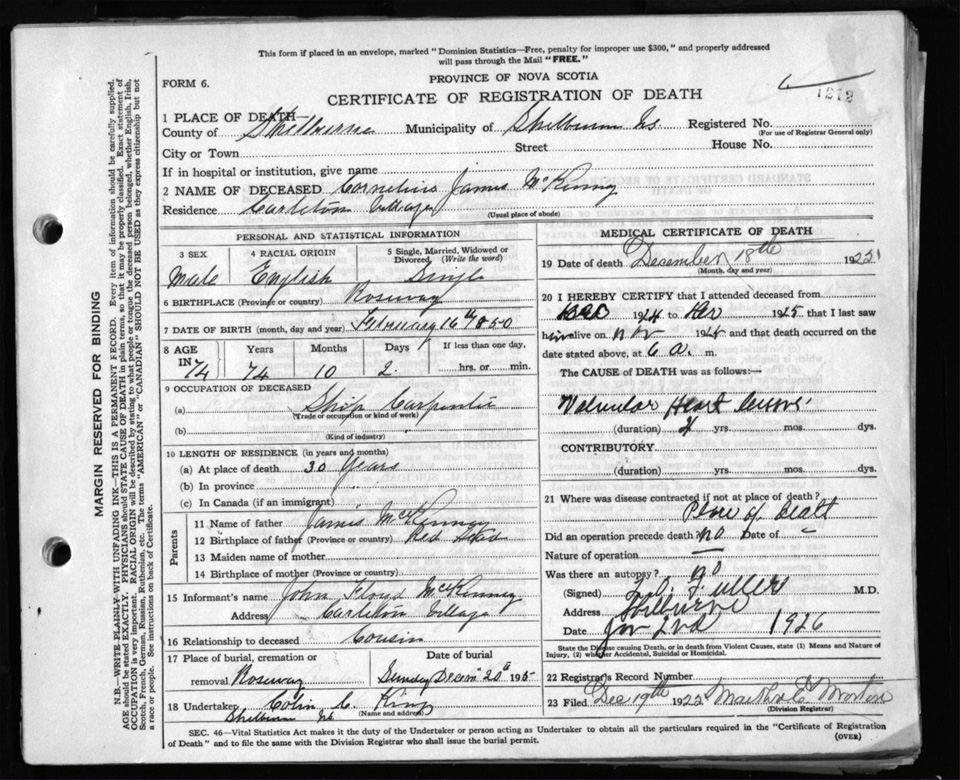 This form if placed in an envelope, marked "Dominion Statistics—Free, penalty for improper use $300," and properly addressed
will pass through the Mail "FREE."
FORM 6.
PROVINCE OF NOVA SCOTIA
CERTIFICATE OF REGISTRATION OF DEATH
1212
1 PLACE OF DEATH—
County of Shelburne Municipality of Shelburne Registered No.
(For use of Registrar General only)
City or Town Street House No.
If in hospital or institution, give name
2 NAME OF DECEASED Cornelius James McKinney
Residence Carleton Village
(Usual place of abode)
PERSONAL AND STATISTICAL INFORMATION
3 SEX 4 RACIAL ORIGIN 5 Single, Married, Widowed or Divorced (Write the word)
Male English Single
6 BIRTHPLACE (Province or country) Roseway
7 DATE OF BIRTH (month, day and year) February 16th 1850
8 AGE IN Years Months Days If less than one day,
74 74 10 2 hrs. or min.
9 OCCUPATION OF DECEASED
(a) Ship Carpenter
(Trade or occupation or kind of work)
(b)
(Kind of industry)
10 LENGTH OF RESIDENCE (in years and months)
(a) At place of death 30 years
(b) In province
(c) In Canada (if an immigrant)
Parents
11 Name of father James McKinney
12 Birthplace of father (Province or country)
13 Maiden name of mother
14 Birthplace of mother (Province or country)
15 Informant's name John Floyd McKinney
Address Carleton Village
16 Relationship to deceased Cousin
17 Place of burial, cremation or Date of burial
removal Roseway Sunday Decem 20th 1925
18 Undertaker Colin C. King
(Name and address)
Shelburne NS
MEDICAL CERTIFICATE OF DEATH
19 Date of death December 18th 192
(Month, day and year)
20 I HEREBY CERTIFY that I attended deceased from
1924 to Dec 1925 that I last saw
him alive on Nov 1925 and that death occurred on the
date stated above, at 6 a. m.
The CAUSE of DEATH was as follows:—
Valvular Heart Lesions
(duration) 2 yrs. mos. dys.
CONTRIBUTORY
(duration) yrs. mos. dys.
21 Where was disease contracted if not at place of death?
Place of death
Did an operation precede death? no Date of
Nature of operation
Was there an autopsy? no
(Signed) Fuller M.D.
Address Shelburne
Date Jan 2nd 1926
State the Disease causing Death, or in death from Violent Causes, state (1) Means and Nature of
Injury, (2) whether Accidental, Suicidal or Homicidal.
22 Registrar's Record Number
23 Filed Dec 19th 192 Martha E. Morton
(Division Registrar)
SEC. 46—Vital Statistics Act makes it the duty of the Undertaker or person acting as Undertaker to obtain all the particulars required in the "Certificate of Registration
of Death" and to file the same with the Division Registrar who shall issue the burial permit.
(OVER)
MARGIN RESERVED FOR BINDING
N.B.—WRITE PLAINLY WITH UNFADING INK—THIS IS A PERMANENT RECORD. Every item of information should be carefully supplied.
AGE should be stated EXACTLY. PHYSICIANS should STATE CAUSE OF DEATH in plain terms, so that it may be properly classified. Exact statement of
OCCUPATION is very important. RACIAL ORIGIN will be described by stating to what people or tongue the deceased person belonged, whether English, Irish,
Scotch, French, German, Russian, Ruthenian, etc. The terms "AMERICAN" or "CANADIAN" SHOULD NOT BE USED as they express citizenship but not
a race or people. See instructions on back of Certificate.